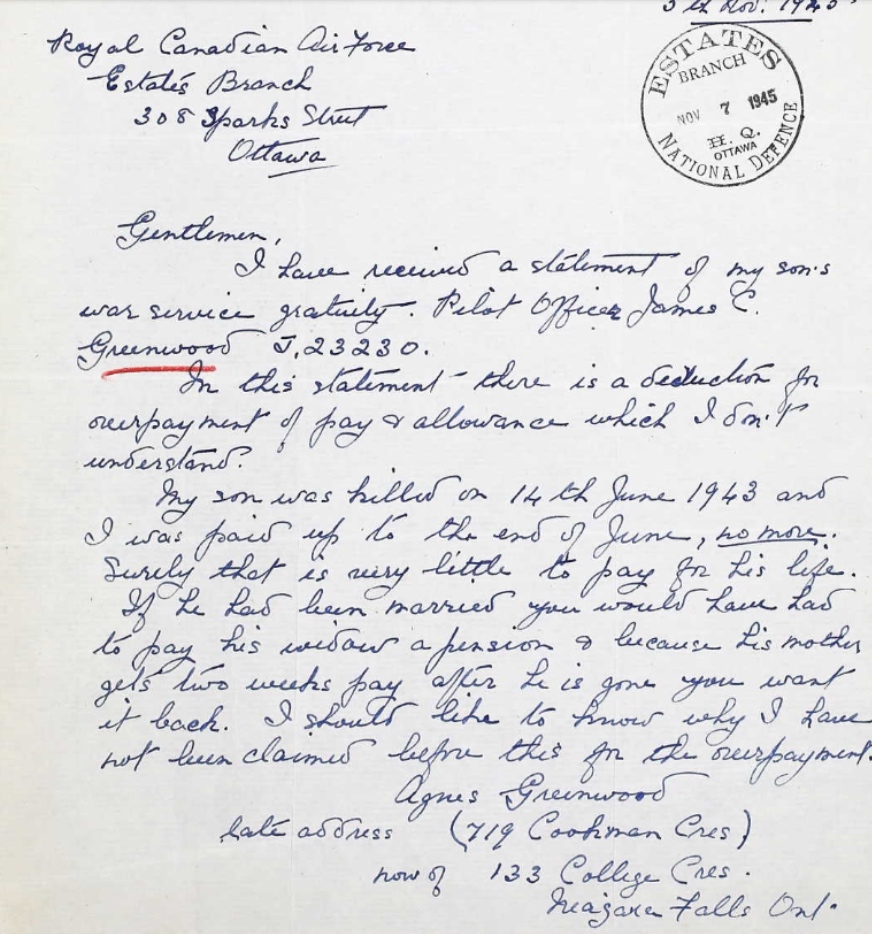 5th Nov. 1945
Royal Canadian Air Force
Estates Branch
308 Sparks Street
Ottawa
ESTATES
BRANCH
NOV 7 1945
H. Q.
OTTAWA
NATIONAL DEFENCE
Gentlemen,
I have received a statement of my son's
war service gratuity. Pilot Officer James C.
Greenwood J.23230.
In this statement there is a deduction for
overpayment of pay & allowance which I don't
understand.
My son was killed on 14th June 1943 and
I was paid up to the end of June, no more.
Surely that is very little to pay for his life.
If he had been married you would have had
to pay his widow a pension & because his mother
gets two weeks pay after he is gone you want
it back. I should like to know why I have
not been claimed before this for the overpayment.
Agnes Greenwood
late address (719 Cookman Cres)
now of 133 College Cres.
Niagara Falls Ont.